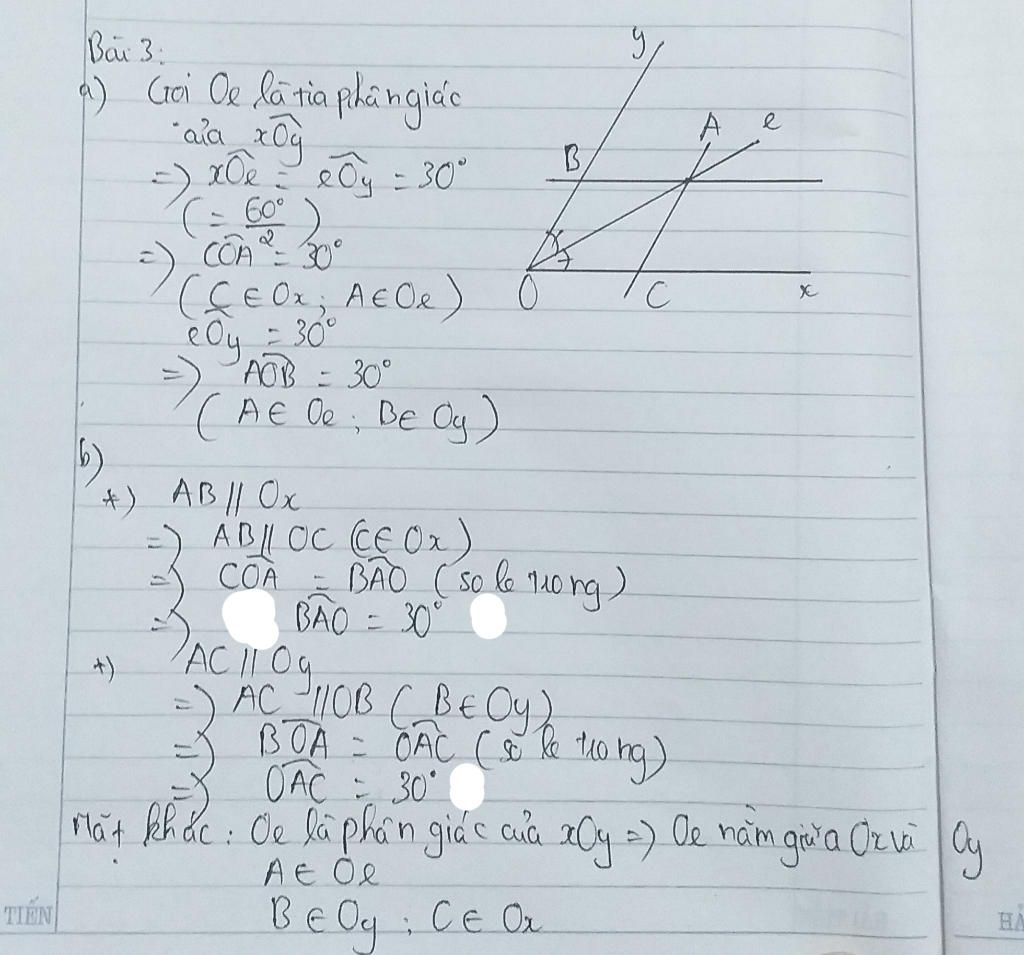 Bài 3:
a) Gọi Oe là tia phân giác
của xOy
=> xOe = eOy = 30°
(= 60°/2)
=> COA = 30°
(C ∈ Ox; A ∈ Oe)
eOy = 30°
=> AOB = 30°
(A ∈ Oe; B ∈ Oy)
b)
*) AB // Ox
=> AB // OC (C ∈ Ox)
=> COA = BAO (so le trong)
=> BAO = 30°
+) AC // Oy
=> AC // OB (B ∈ Oy)
=> BOA = OAC (so le trong)
=> OAC = 30°
Mặt khác: Oe là phân giác của xOy => Oe nằm giữa Ox và Oy
A ∈ Oe
B ∈ Oy; C ∈ Ox
y
A e
B
O C x
TIẾN
HẢ